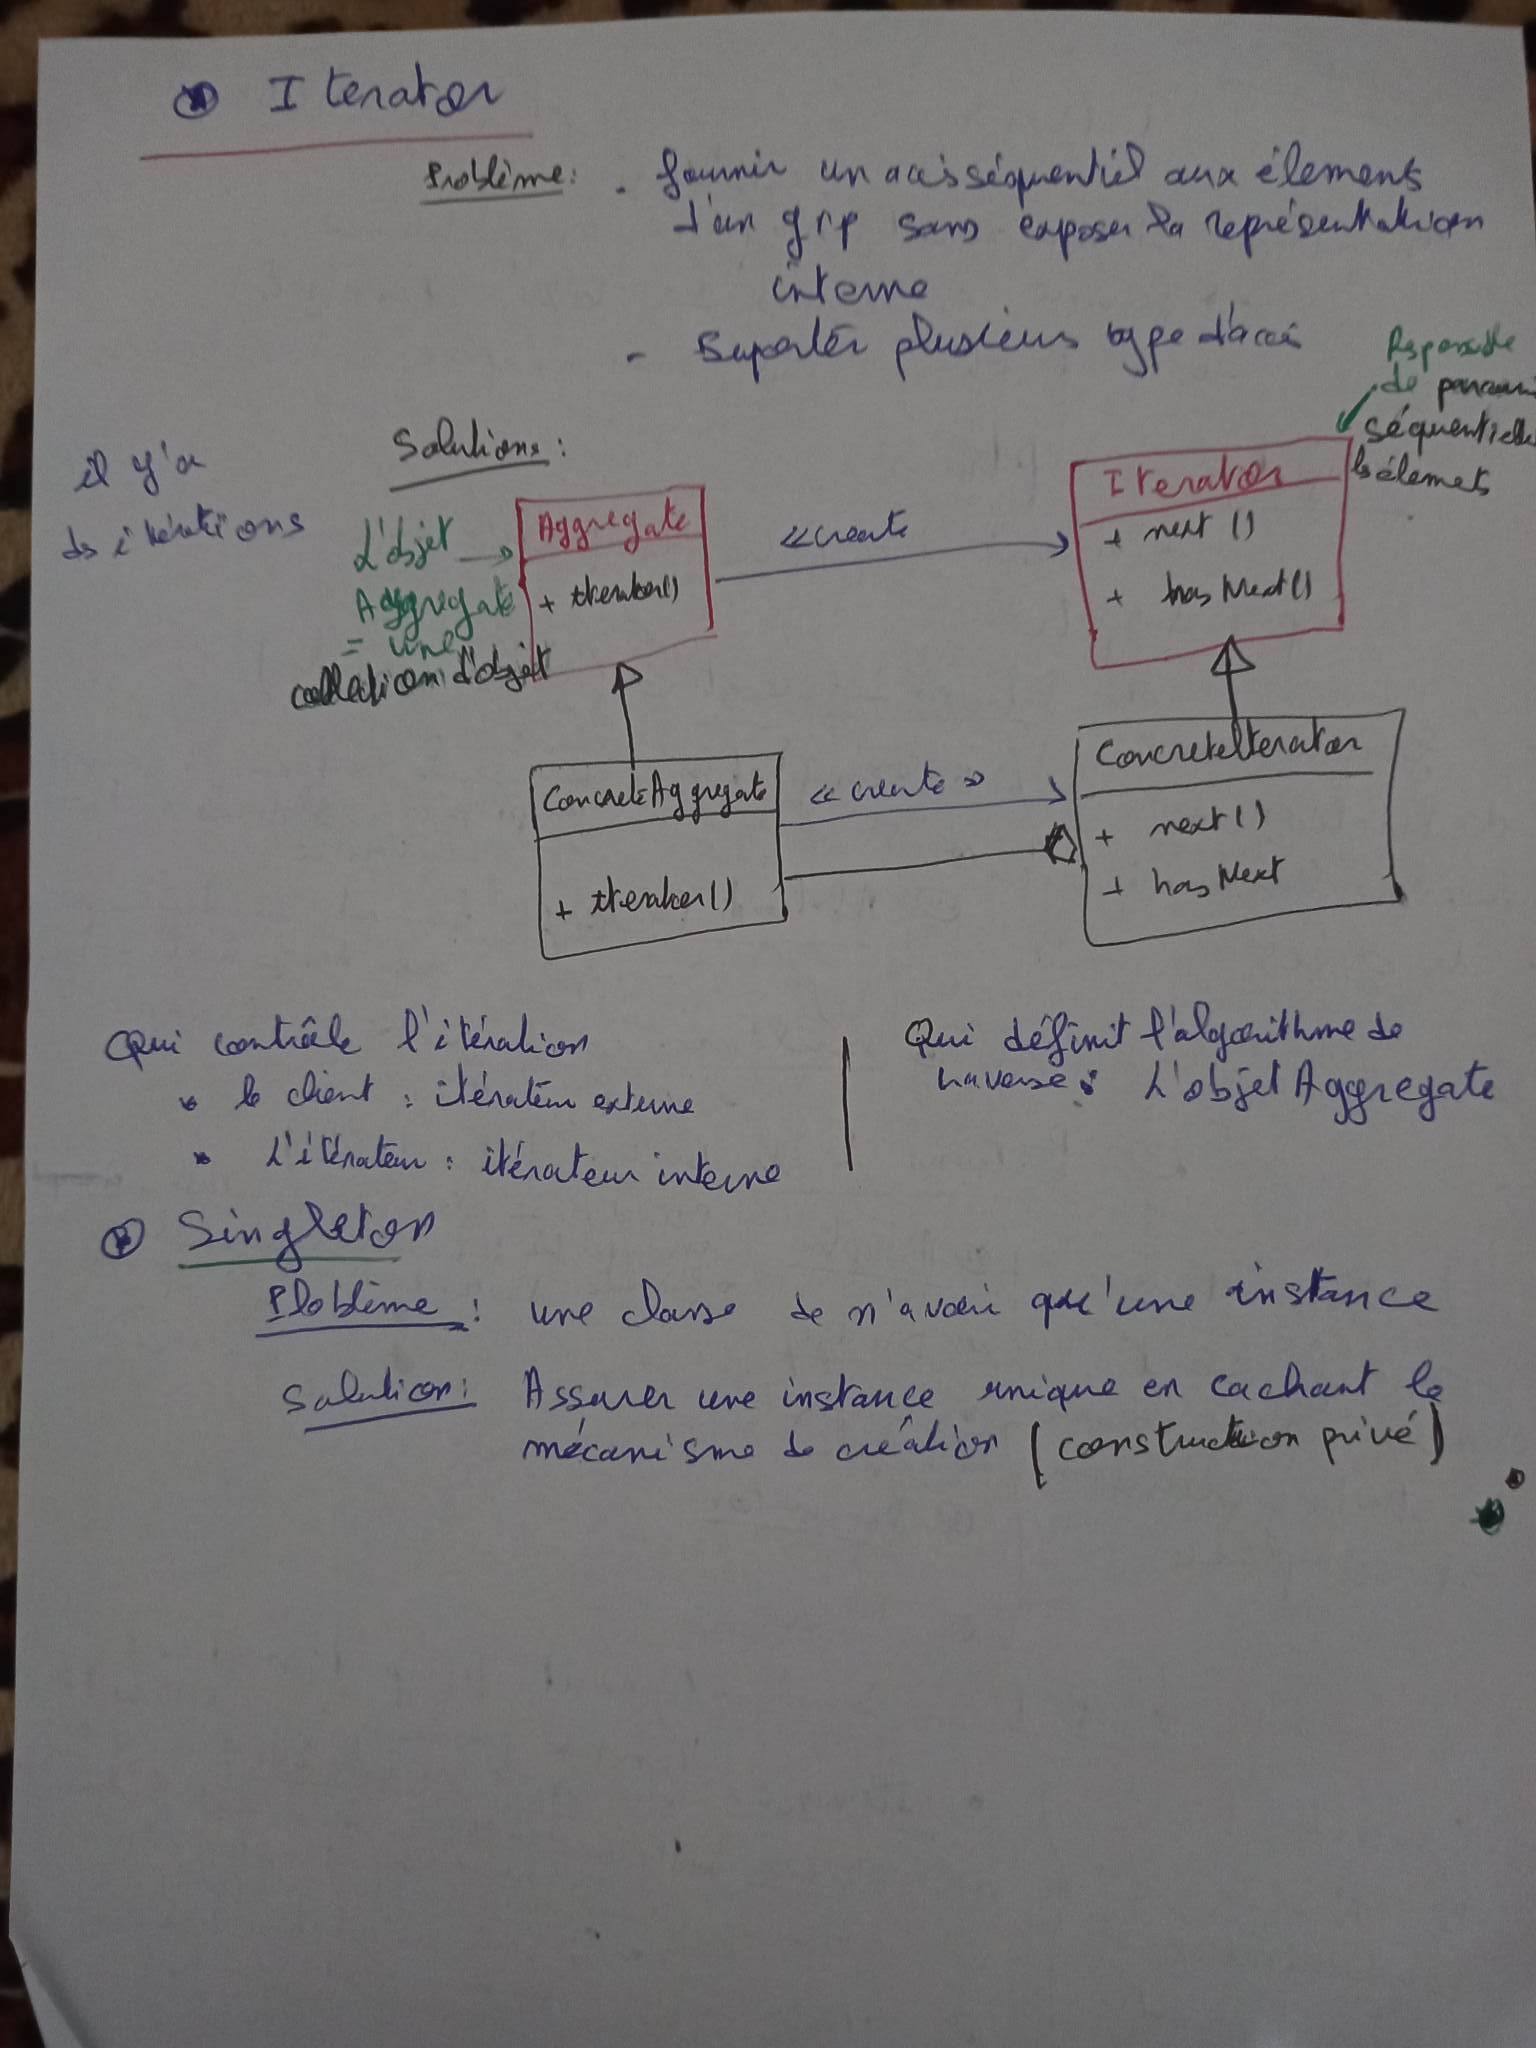 Iterator
Problème : . fournir un accès séquentiel aux élements
d'un grp sans exposer la représentation
interne
- Suporter plusieurs type d'accès
Responsable
de parcourir
séquentielle
les élemets
il y'a
des itérations
Solutions :
L'objet
Aggregate
= une
collection d'objet
Aggregate
+ iterator()
<<create
Iterator
+ next ()
+ hasNext()
ConcreteAggregate
+ iterator()
<<create>>
ConcreteIterator
+ next()
+ hasNext
Qui contrôle l'itération
• le client : itérateur externe
• L'itérateur : itérateur interne
Qui définit l'algorithme de
traverse : L'objet Aggregate
Singleton
Ploblème : une classe de n'avoir qu'une instance
Solution : Assurer une instance unique en cachant le
mécanisme de création (construction privé)